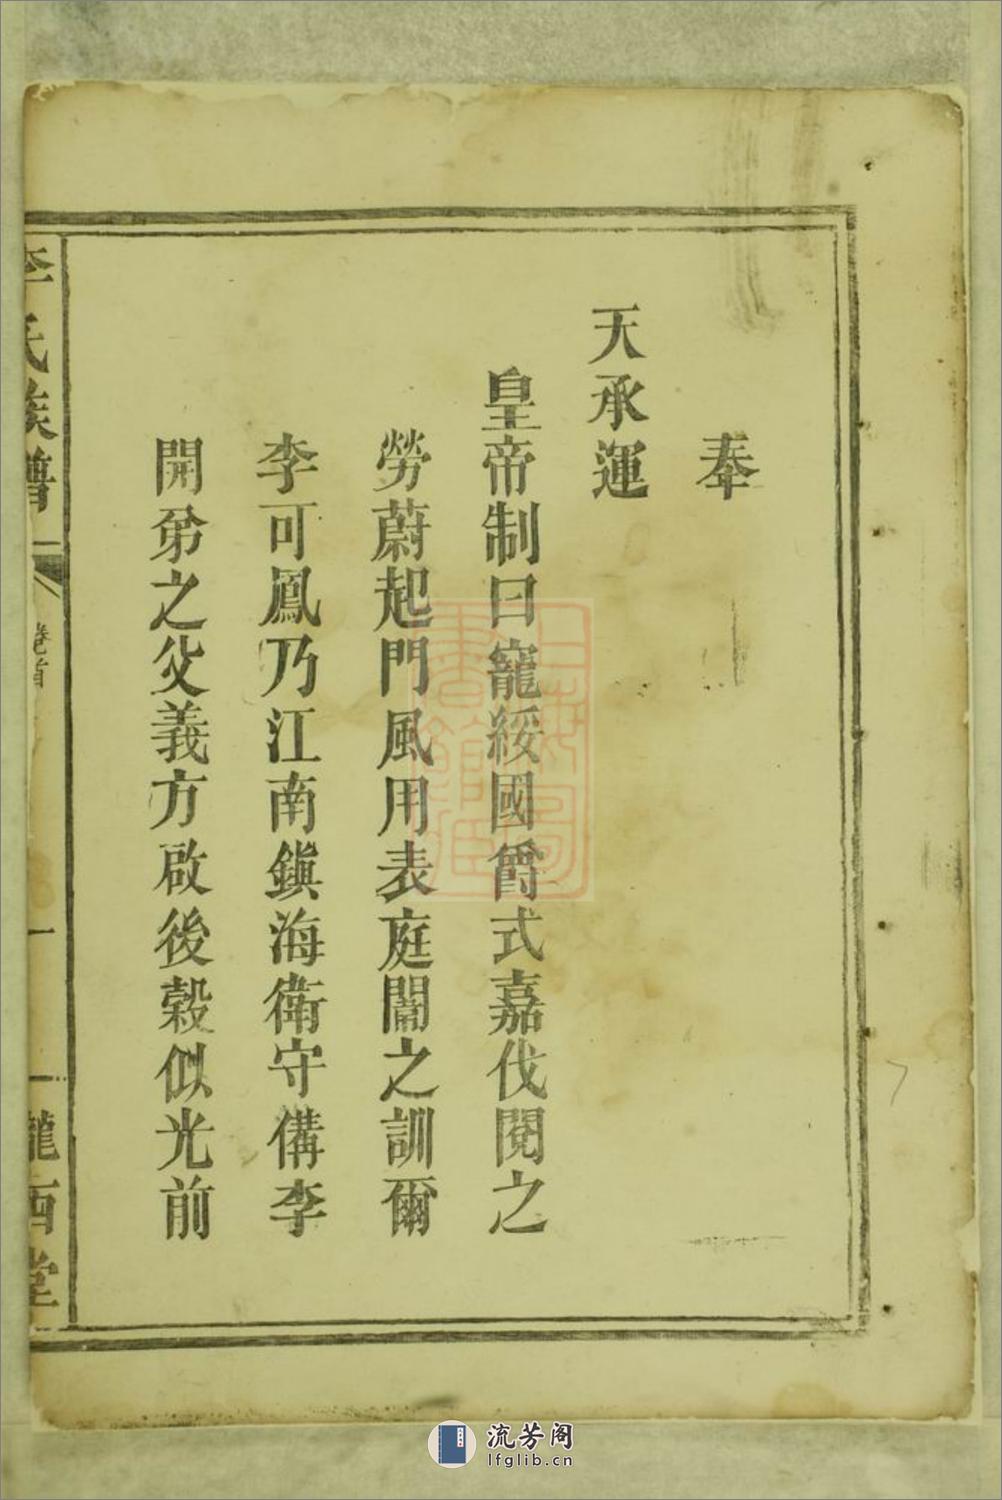 奉
天承運
皇帝制曰寵綏國爵式嘉伐閱之
勞蔚起門風用表庭闈之訓爾
李可鳳乃江南鎮海衛守備李
開弟之父義方啟後穀似光前
李氏族譜
卷首
一
隴西堂
上海圖書館藏
流芳阁
lfglib.cn